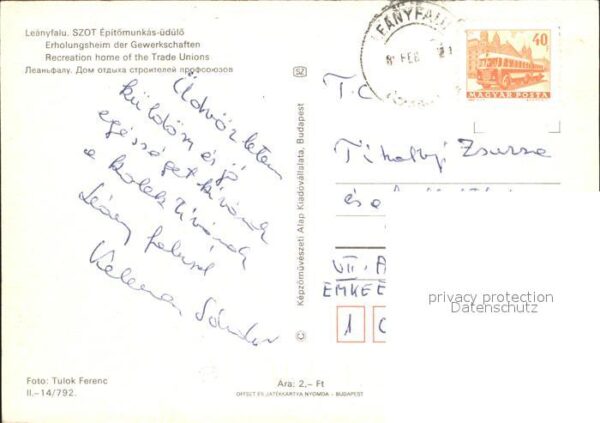 Leányfalu. SZOT Építőmunkás-üdülő
Erholungsheim der Gewerkschaften
Recreation home of the Trade Unions
Леаньфалу. Дом отдыха строителей профсоюзов
LEÁNYFALU
FEB
40
MAGYAR POSTA
SZ
Üdvözletem
küldön és jó
egészséget kívánok
a kolektivának
Leány faluról
Kelemen Sándor
Képzőművészeti Alap Kiadóvállalata, Budapest
T. C
Tihanyi Zsuzsa
és a
VII. A
EMKEE
1 C
privacy protection
Datenschutz
Foto: Tulok Ferenc
II.-14/792.
Ára: 2,- Ft
OFFSET ÉS JÁTÉKKÁRTYA NYOMDA - BUDAPEST